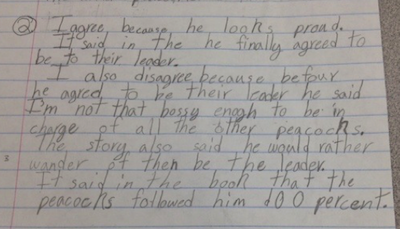 ② I agree because he looks proud.
It said in the he finally agreed to
be to their leader.
I also disagree because befour
he agreed to be their leader he said
I'm not that bossy enogh to be in
charge of all the other peacocks.
The story also said he would rather
wander of then be the leader.
It said in the book that the
peacocks followed him 100 percent.